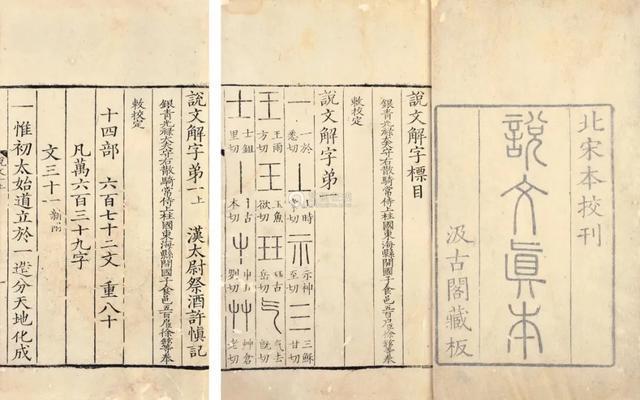 北宋本校刊
說文眞本
汲古閣藏板
說文解字標目
銀青光祿大夫守右散騎常侍上柱國東海縣開國子食邑五百户臣徐鉉等奉
敕校定
說文解字弟一
一 一於悉切 丄 時切 示 示神至切 三 三穌甘切
王 王雨方切 玉 玉魚欲切 玨 古岳切 气 气去旣切
士 士鉏里切 丨 丨古本切 屮 屮列切 艸 艸倉老切
說文解字弟一上 漢太尉祭酒許愼記
銀青光祿大夫守右散騎常侍上柱國東海縣開國子食邑五百户臣徐鉉等奉
敕校定
十四部 六百七十二文 重八十
凡萬六百三十九字
文三十一新附
一 惟初太始道立於一造分天地化成